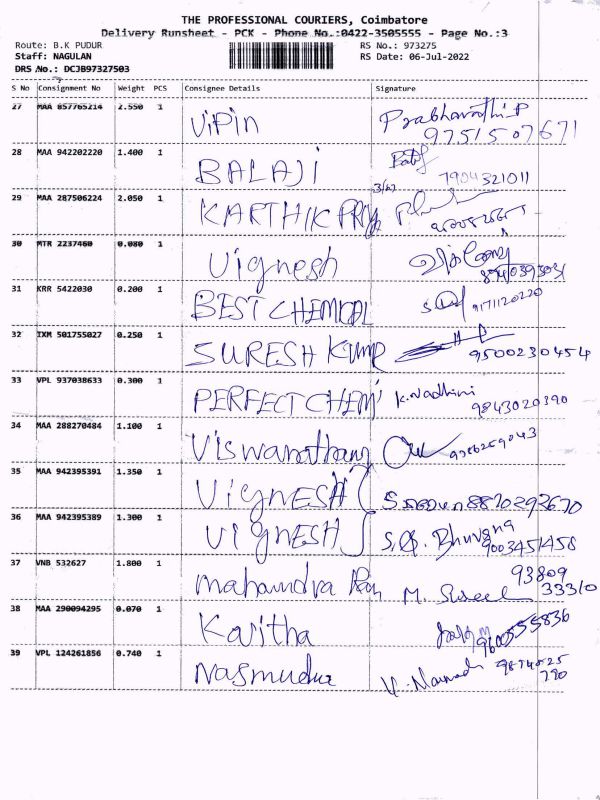 THE PROFESSIONAL COURIERS, Coimbatore
Delivery Runsheet - PCK - Phone No.:0422-3505555 - Page No.:3
Route: B.K PUDUR RS No.: 973275
Staff: NAGULAN RS Date: 06-Jul-2022
DRS No.: DCJB97327503
S No Consignment No Weight PCS Consignee Details Signature
27 MAA 857765214 2.550 1 ViPin Prabharathi.P
9751507671
28 MAA 942202220 1.400 1 BALAJI
7904321011
29 MAA 287506224 2.050 1 KARTHIK PRIY
30 MTR 2237460 0.080 1 Vignesh
31 KRR 5422030 0.200 1 BEST CHEMICAL 9171120220
32 IXM 501755027 0.250 1 SURESH KUMR 9500230454
33 VPL 937038633 0.300 1 PERFECT CHEM K.Nadhini
9843020390
34 MAA 288270484 1.100 1 Viswanathan
35 MAA 942395391 1.350 1 VIGNESH 8870293670
36 MAA 942395389 1.300 1 VIGNESH Bhuvana
9003451458
37 VNB 532627 1.800 1 Mahaindra Ran M. 93809
33310
38 MAA 290094295 0.070 1 Kavitha 9600555836
39 VPL 124261856 0.740 1 Nasmudur